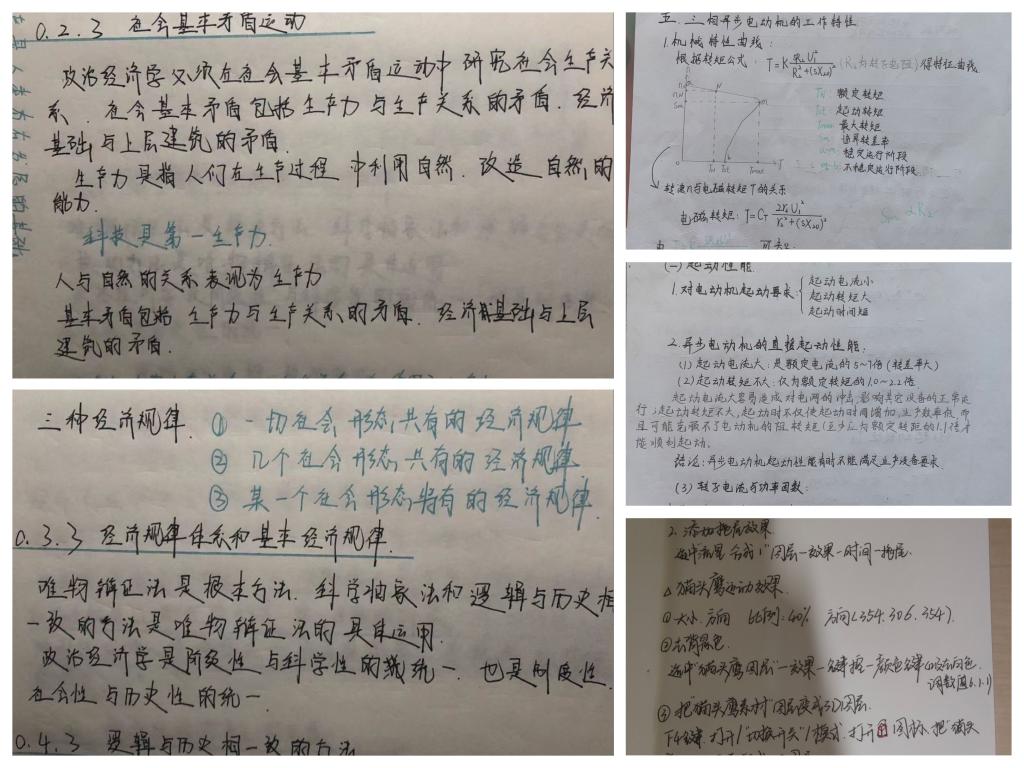 0.2.3 社会基本矛盾运动
政治经济学又须在社会基本矛盾运动中研究社会生产关
系. 社会基本矛盾包括生产力与生产关系的矛盾. 经济
基础与上层建筑的矛盾.
生产力是指人们在生产过程中利用自然. 改造自然的
能力.
科技是第一生产力.
人与自然的关系表现为生产力
基本矛盾包括 生产力与生产关系的矛盾. 经济基础与上层
建筑的矛盾.
三种经济规律. ① 一切社会形态共有的经济规律
② 几个社会形态共有的经济规律
③ 某一个社会形态特有的经济规律.
0.3.3 经济规律体系和基本经济规律.
唯物辩证法是根本方法. 科学抽象法和逻辑与历史相
一致的方法是唯物辩证法的具体运用.
政治经济学是阶级性与科学性的统一. 也是制度性.
社会性与历史性的统一
0.4.3 逻辑与历史相一致的方法
五. 三相异步电动机的工作特性
1. 机械特性曲线:
根据转矩公式: (R₂为转子电阻) 得特征曲线
TN: 额定转矩
Tst: 起动转矩
Tmax: 最大转矩
Sm: 临界转差率
稳定运行阶段
不稳定运行阶段
转速n与电磁转矩T的关系
电磁转矩:
(一) 起动性能.
1. 对电动机起动要求 起动电流小
起动转矩大
起动时间短
2. 异步电动机的直接起动性能.
(1) 起动电流大: 是额定电流的5~7倍 (转差率大)
(2) 起动转矩不大: 仅为额定转矩的1.0~2.2倍
起动电流大容易造成对电网的冲击,影响其它设备的正常运
行; 起动转矩不大,起动时不仅使起动时间增加,生产效率低,而
且可能克服不了电动机的阻转矩(至少应为额定转距的1.1倍才
能顺利起动.
结论: 异步电动机起动性能有时不能满足生产设备要求.
(3) 转子电流与功率因数:
2. 添加拖尾效果.
图层一效果一时间一拖尾.
△ 猫头鹰运动效果.
①大小. 方向 比例:40% 方向(354.306.354).
②去背景色.
选中"猫头鹰图层"一效果一键控一颜色键
③ 把"猫头鹰素材"图层变成3D图层.
打开"切换开关"/模式. 打开 图标. 把"猫头